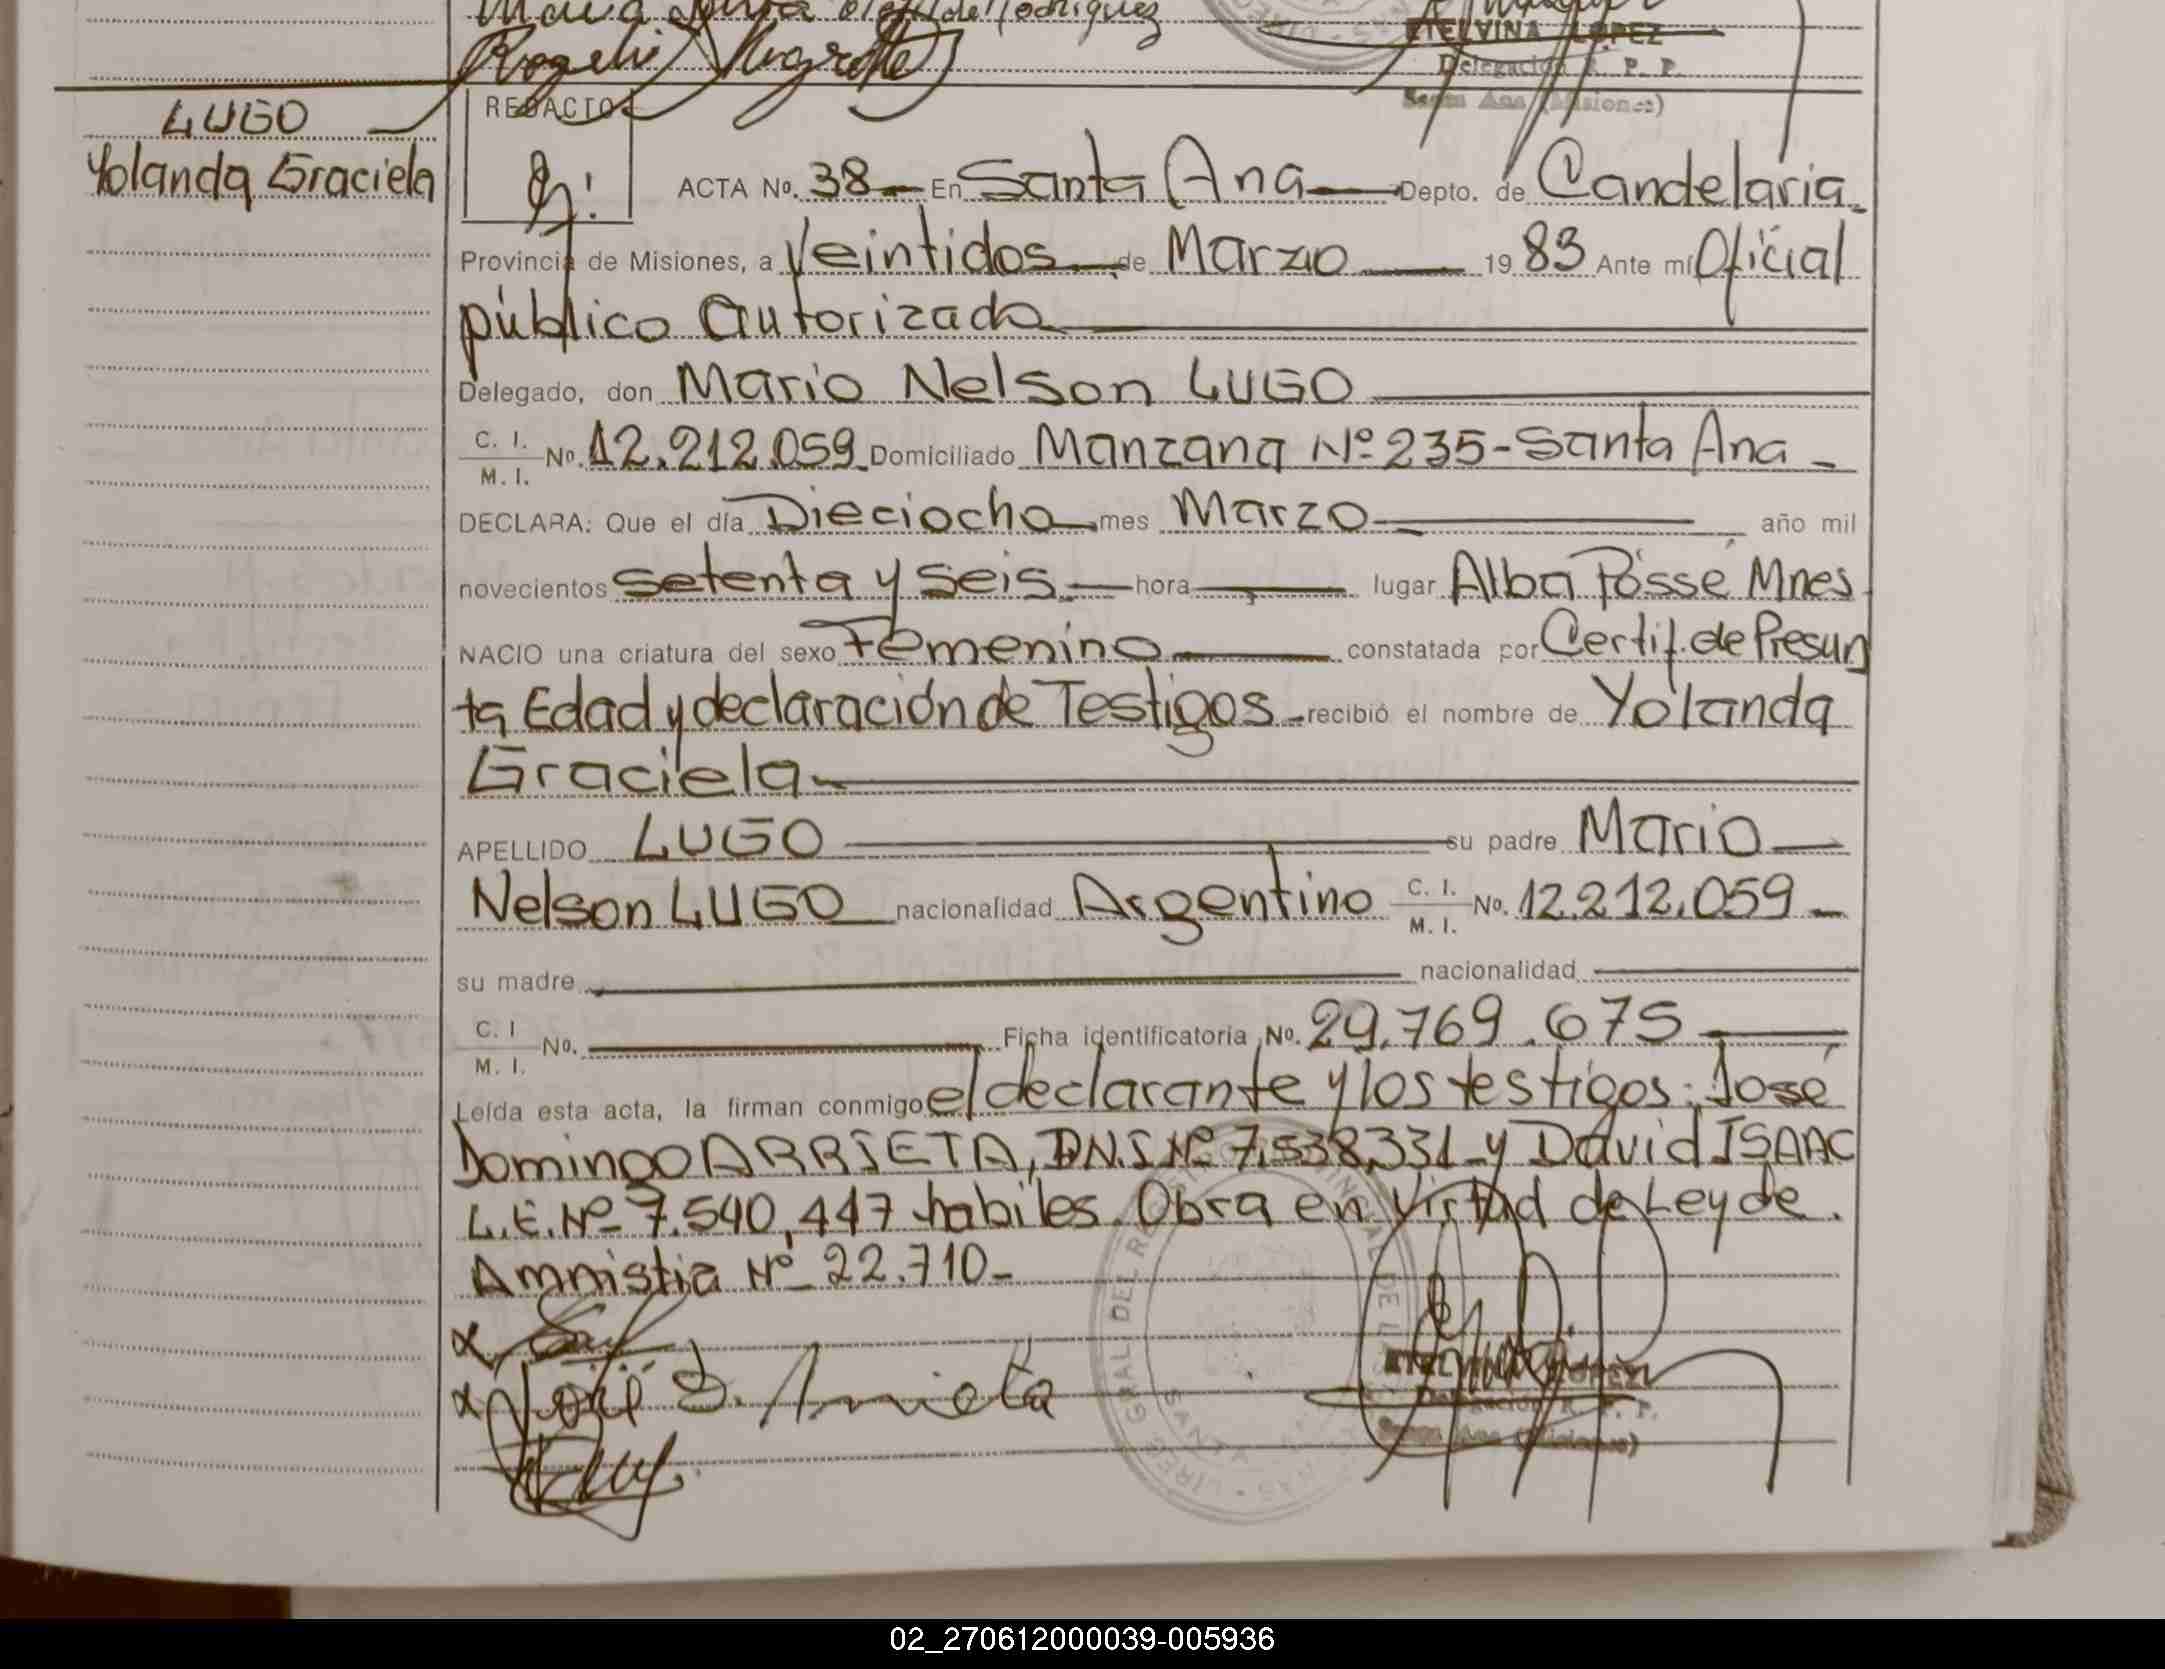 Rogelio Negrete
ETELVINA LOPEZ
Delegación R. P. P.
Santa Ana (Misiones)
LUGO
Yolanda Graciela
REDACTO
ACTA No. 38 - En Santa Ana - Depto. de Candelaria.
Provincia de Misiones, a Veintidos de Marzo 1983 Ante mí Oficial
público autorizado
Delegado, don Mario Nelson LUGO
C. I. / M. I. No. 12.212.059 Domiciliado Manzana Nº 235 - Santa Ana -
DECLARA: Que el día Dieciocho mes Marzo año mil
novecientos setenta y seis. hora lugar Alba Pósse Mnes.
NACIO una criatura del sexo Femenino constatada por Certif. de Presun
ta Edad y declaración de Testigos - recibió el nombre de Yolanda
Graciela
APELLIDO LUGO su padre Mario
Nelson LUGO nacionalidad Argentino C. I. / M. I. No. 12.212.059 -
su madre nacionalidad
C. I / M. I. No. Ficha identificatoria No. 29.769.675
Leída esta acta, la firman conmigo el declarante y los testigos: José
Domingo ARRIETA, D.N.I Nº 7.538.331 - y David ISAAC
L.E. Nº 7.540.447 habiles. Obra en Virtud de Ley de.
Amnistia Nº 22.710 -
José D. Arrieta
Delegación R. P. P.
Santa Ana (Misiones)
02_270612000039-005936